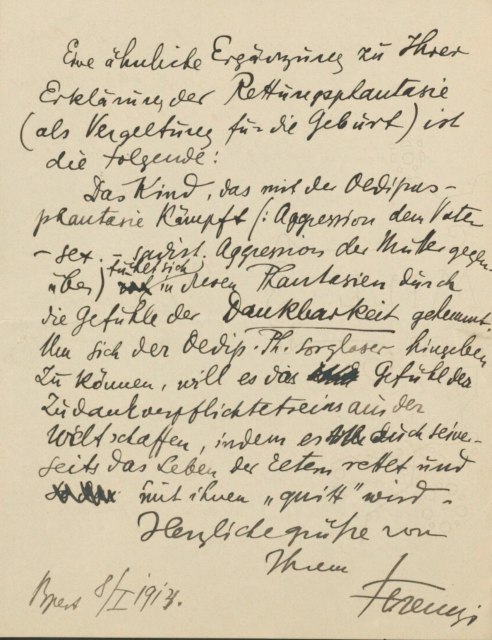 Eine ähnliche Ergänzung zu Ihrer
Erklärung der Rettungsphantasie
(als Vergeltung für die Geburt) ist
die folgende:
Das Kind, das mit der Oedipus-
phantasie kämpft (: Aggression dem Vater
- sex. - Aggression der Mutter gegen-
über) fühlt sich in diesen Phantasien durch
die Gefühle der Dankbarkeit gehemmt.
Um sich der Oedip. Ph. sorgloser hingeben
zu können, will es das Gefühl des
Zudankverpflichtetseins aus der
Welt schaffen, indem es auch seiner-
seits das Leben der Eltern rettet und
mit ihnen „quitt" wird -
Herzliche grüße von
Ihrem
Ferenczi
Bpest 8/I 1913.